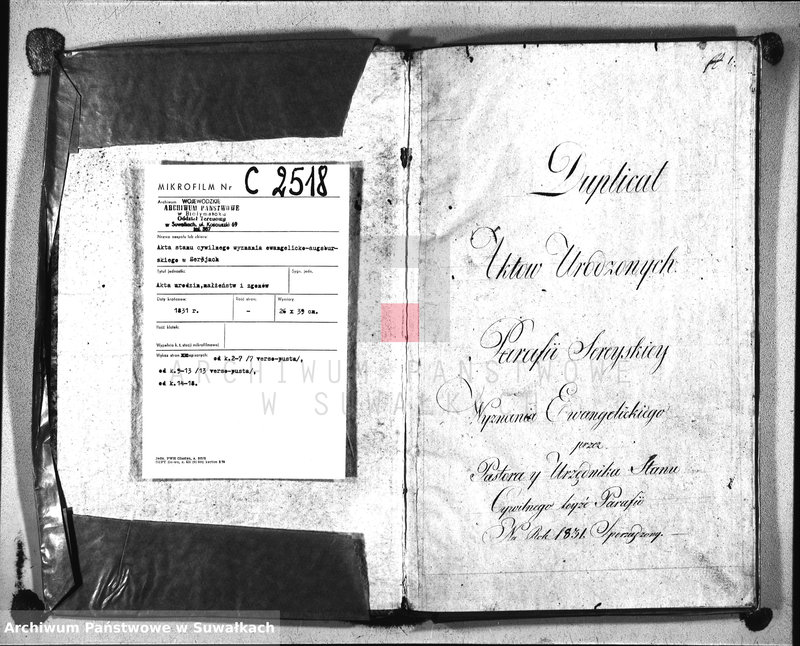 MIKROFILM Nr C 2518
Archiwum WOJEWÓDZKIE
ARCHIWUM PAŃSTWOWE
w Białymstoku
Oddział Terenowy
w Suwałkach, ul. Kościuszki 69
Nazwa zespołu lub zbioru:
Akta stanu cywilnego wyznania ewangelicko-augsbur-
skiego w Serejach
Tytuł jednostki: Sygn. jedn.
Akta urodzin,małżeństw i zgonów
Daty krańcowe: Ilość stron: Wymiary:
1831 r. - 26 x 39 cm.
Ilość klatek:
Wypełnia k. t. stacji mikrofilmowej
Wykaz stron zapisanych: od k.2-7 /7 verso-pusta/,
od k.9-13 /13 verso-pusta/,
od k.14-18.
1.
Duplicat
Aktow Urodzonych
Parafii Sereyskiey
Wyznania Ewangelickiego
przez
Pastora y Urzędnika Stanu
Cywilnego teyże Parafii
Na Rok 1831. Sporządzony.
ARCHIWUM PAŃSTWOWE
W SUWAŁKACH
Archiwum Państwowe w Suwałkach